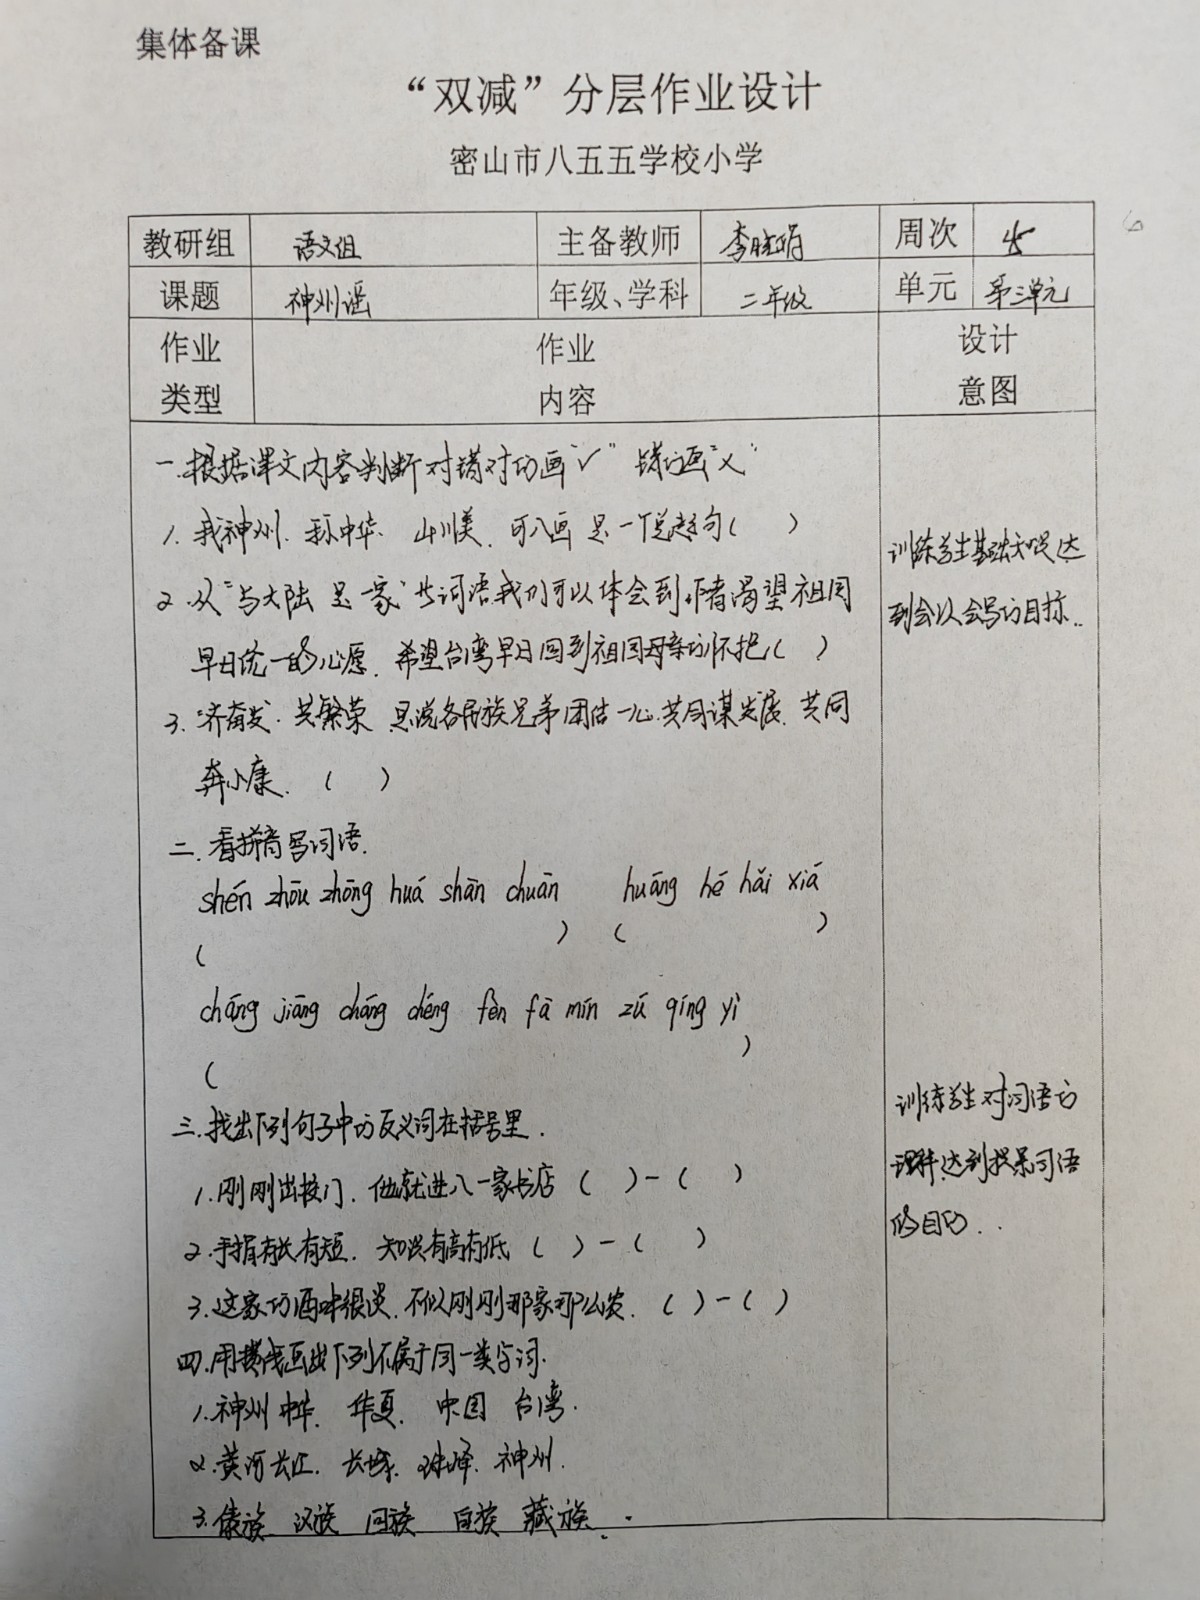 集体备课
“双减”分层作业设计
密山市八五五学校小学
教研组 语文组 主备教师 李 周次
课题 神州谣 年级、学科 二年级 单元 第三单元
作业类型 作业内容 设计意图
一.根据课文内容判断对错对的画“√”错的画“×”
1.我神州.称中华.山川美.可入画是一个总起句( )
2.从“与大陆是一家”等词语我们可以体会到作者渴望祖国
早日统一的心愿.希望台湾早日回到祖国母亲的怀抱( )
3.“齐奋发.共繁荣 是说各民族兄弟团结一心.共同谋发展.共同
奔小康.( )
二.看拼音写词语.
shén zhōu zhōng huá shān chuān huáng hé hǎi xiá
( ) ( )
cháng jiāng cháng chéng fèn fā mín zú qíng yì
( )
三.找出下列句子中的反义词在括号里.
1.刚刚出校门.他就进入一家书店 ( )-( )
2.手指有长有短.知识有高有低 ( )-( )
3.这家的酒味很淡.不似刚刚那家那么浓.( )-( )
四.用横线画出下列不属于同一类字词.
1.神州 中华.华夏.中国 台湾.
2.黄河 长江.长城.珠峰.神州.
3.傣族 汉族 回族 白族 藏族.
训练学生基础知识达
到会认会写的目标..
训练学生对词语的
理解.达到积累词语
的目的...